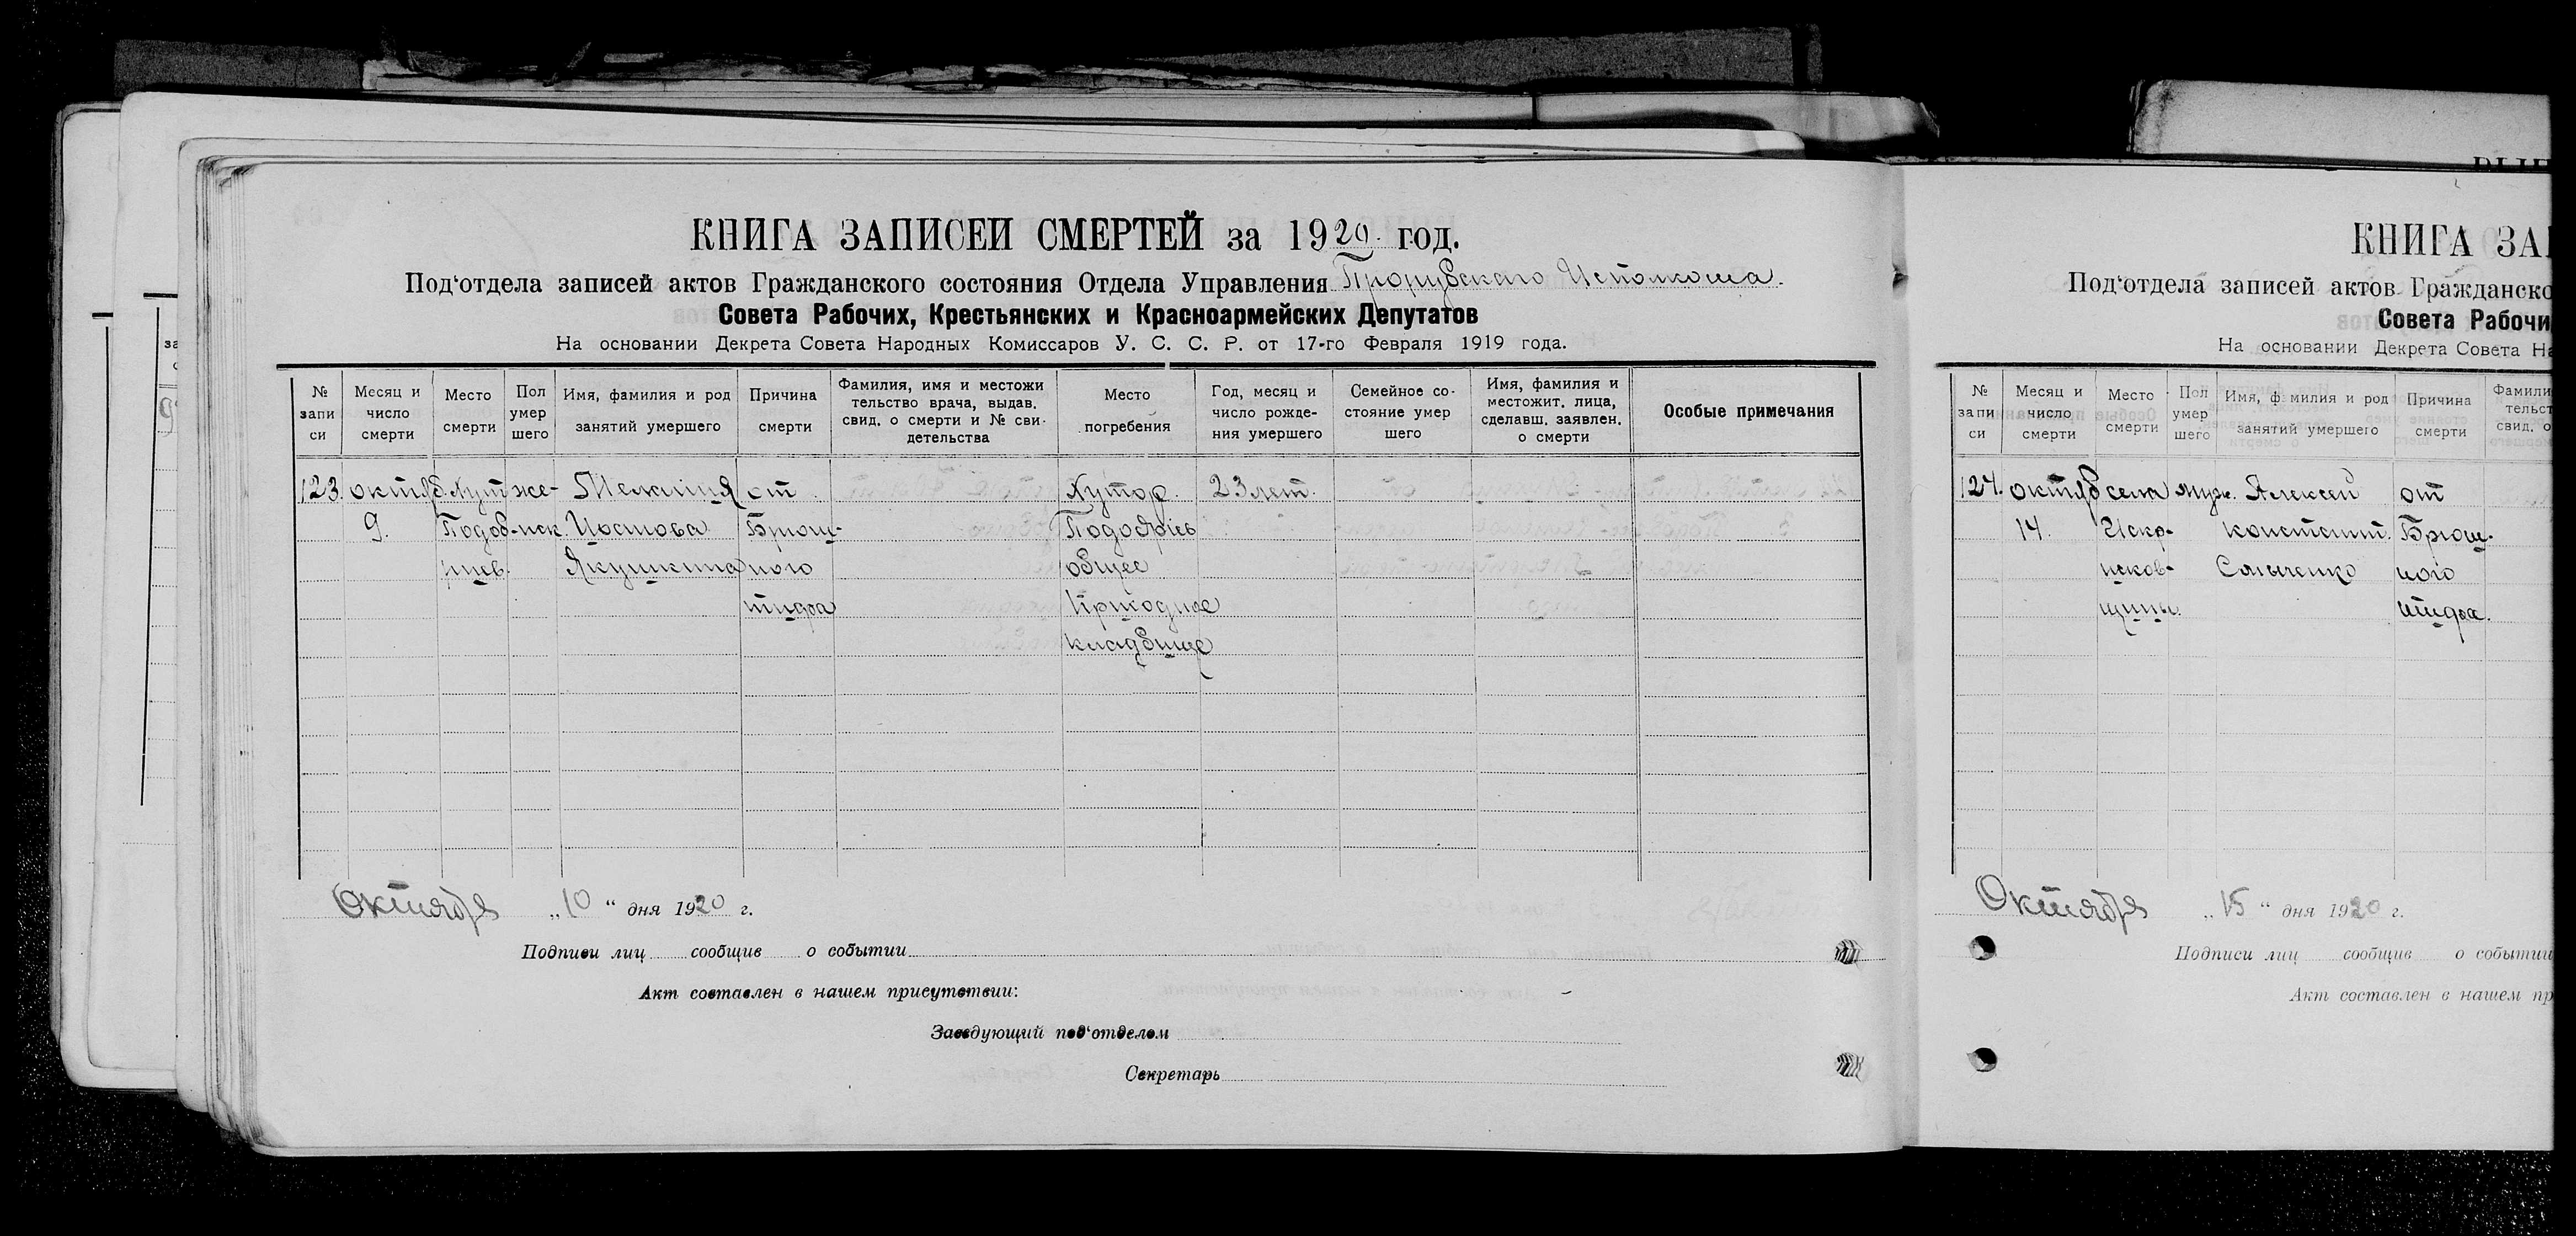 КНИГА ЗАПИСЕЙ СМЕРТЕЙ за 1920. год.
Под‘отдела записей актов Гражданского состояния Отдела Управления Прорубскаго Исполкома.
Совета Рабочих, Крестьянских и Красноармейских Депутатов
На основании Декрета Совета Народных Комиссаров У. С. С. Р. от 17-го Февраля 1919 года.
№ запи си
Месяц и число смерти
Место смерти
Пол умер шего
Имя, фамилия и род занятий умершего
Причина смерти
Фамилия, имя и местожи тельство врача, выдав. свид. о смерти и № сви- детельства
Место погребения
Год, месяц и число рожде- ния умершего
Семейное со- стояние умер шего
Имя, фамилия и местожит. лица, сделавш. заявлен. о смерти
Особые примечания
123. октяб. Хут. же- Мелания от Хутор. 23 лет.
9. Подоб- нск. Иостова Брюш-
Якушкина ного общее
тифа Приходное
кладбище
Октября „10“ дня 1920 г.
Подписи лиц сообщив о событии
Акт составлен в нашем присутствии:
Заведующий под‘отделом
Секретарь
КНИГА ЗА
Под‘отдела записей актов Гражданско
Совета Рабочи
На основании Декрета Совета На
№ запи си
Месяц и число смерти
Место смерти
Пол умер шего
Имя, фамилия и род занятий умершего
Причина смерти
Фамили тельст свид. о
124. октяб села муж. Алексей от
14. Искр- констант. Брюш-
исков- Смыченко ного
щины. тифа.
Октября „15“ дня 1920 г.
Подписи лиц сообщив о событии
Акт составлен в нашем пр